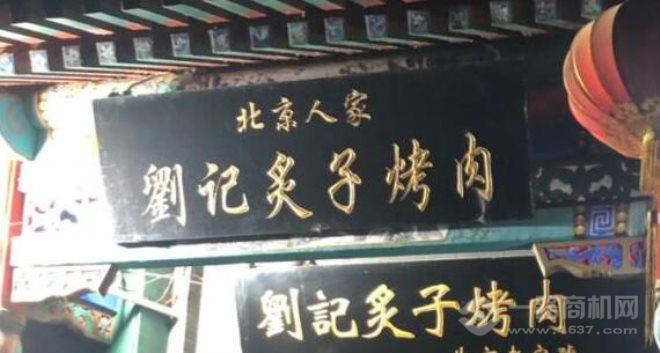 北京人家
劉记炙子烤肉
劉記炙子烤肉
商机网
1637.com